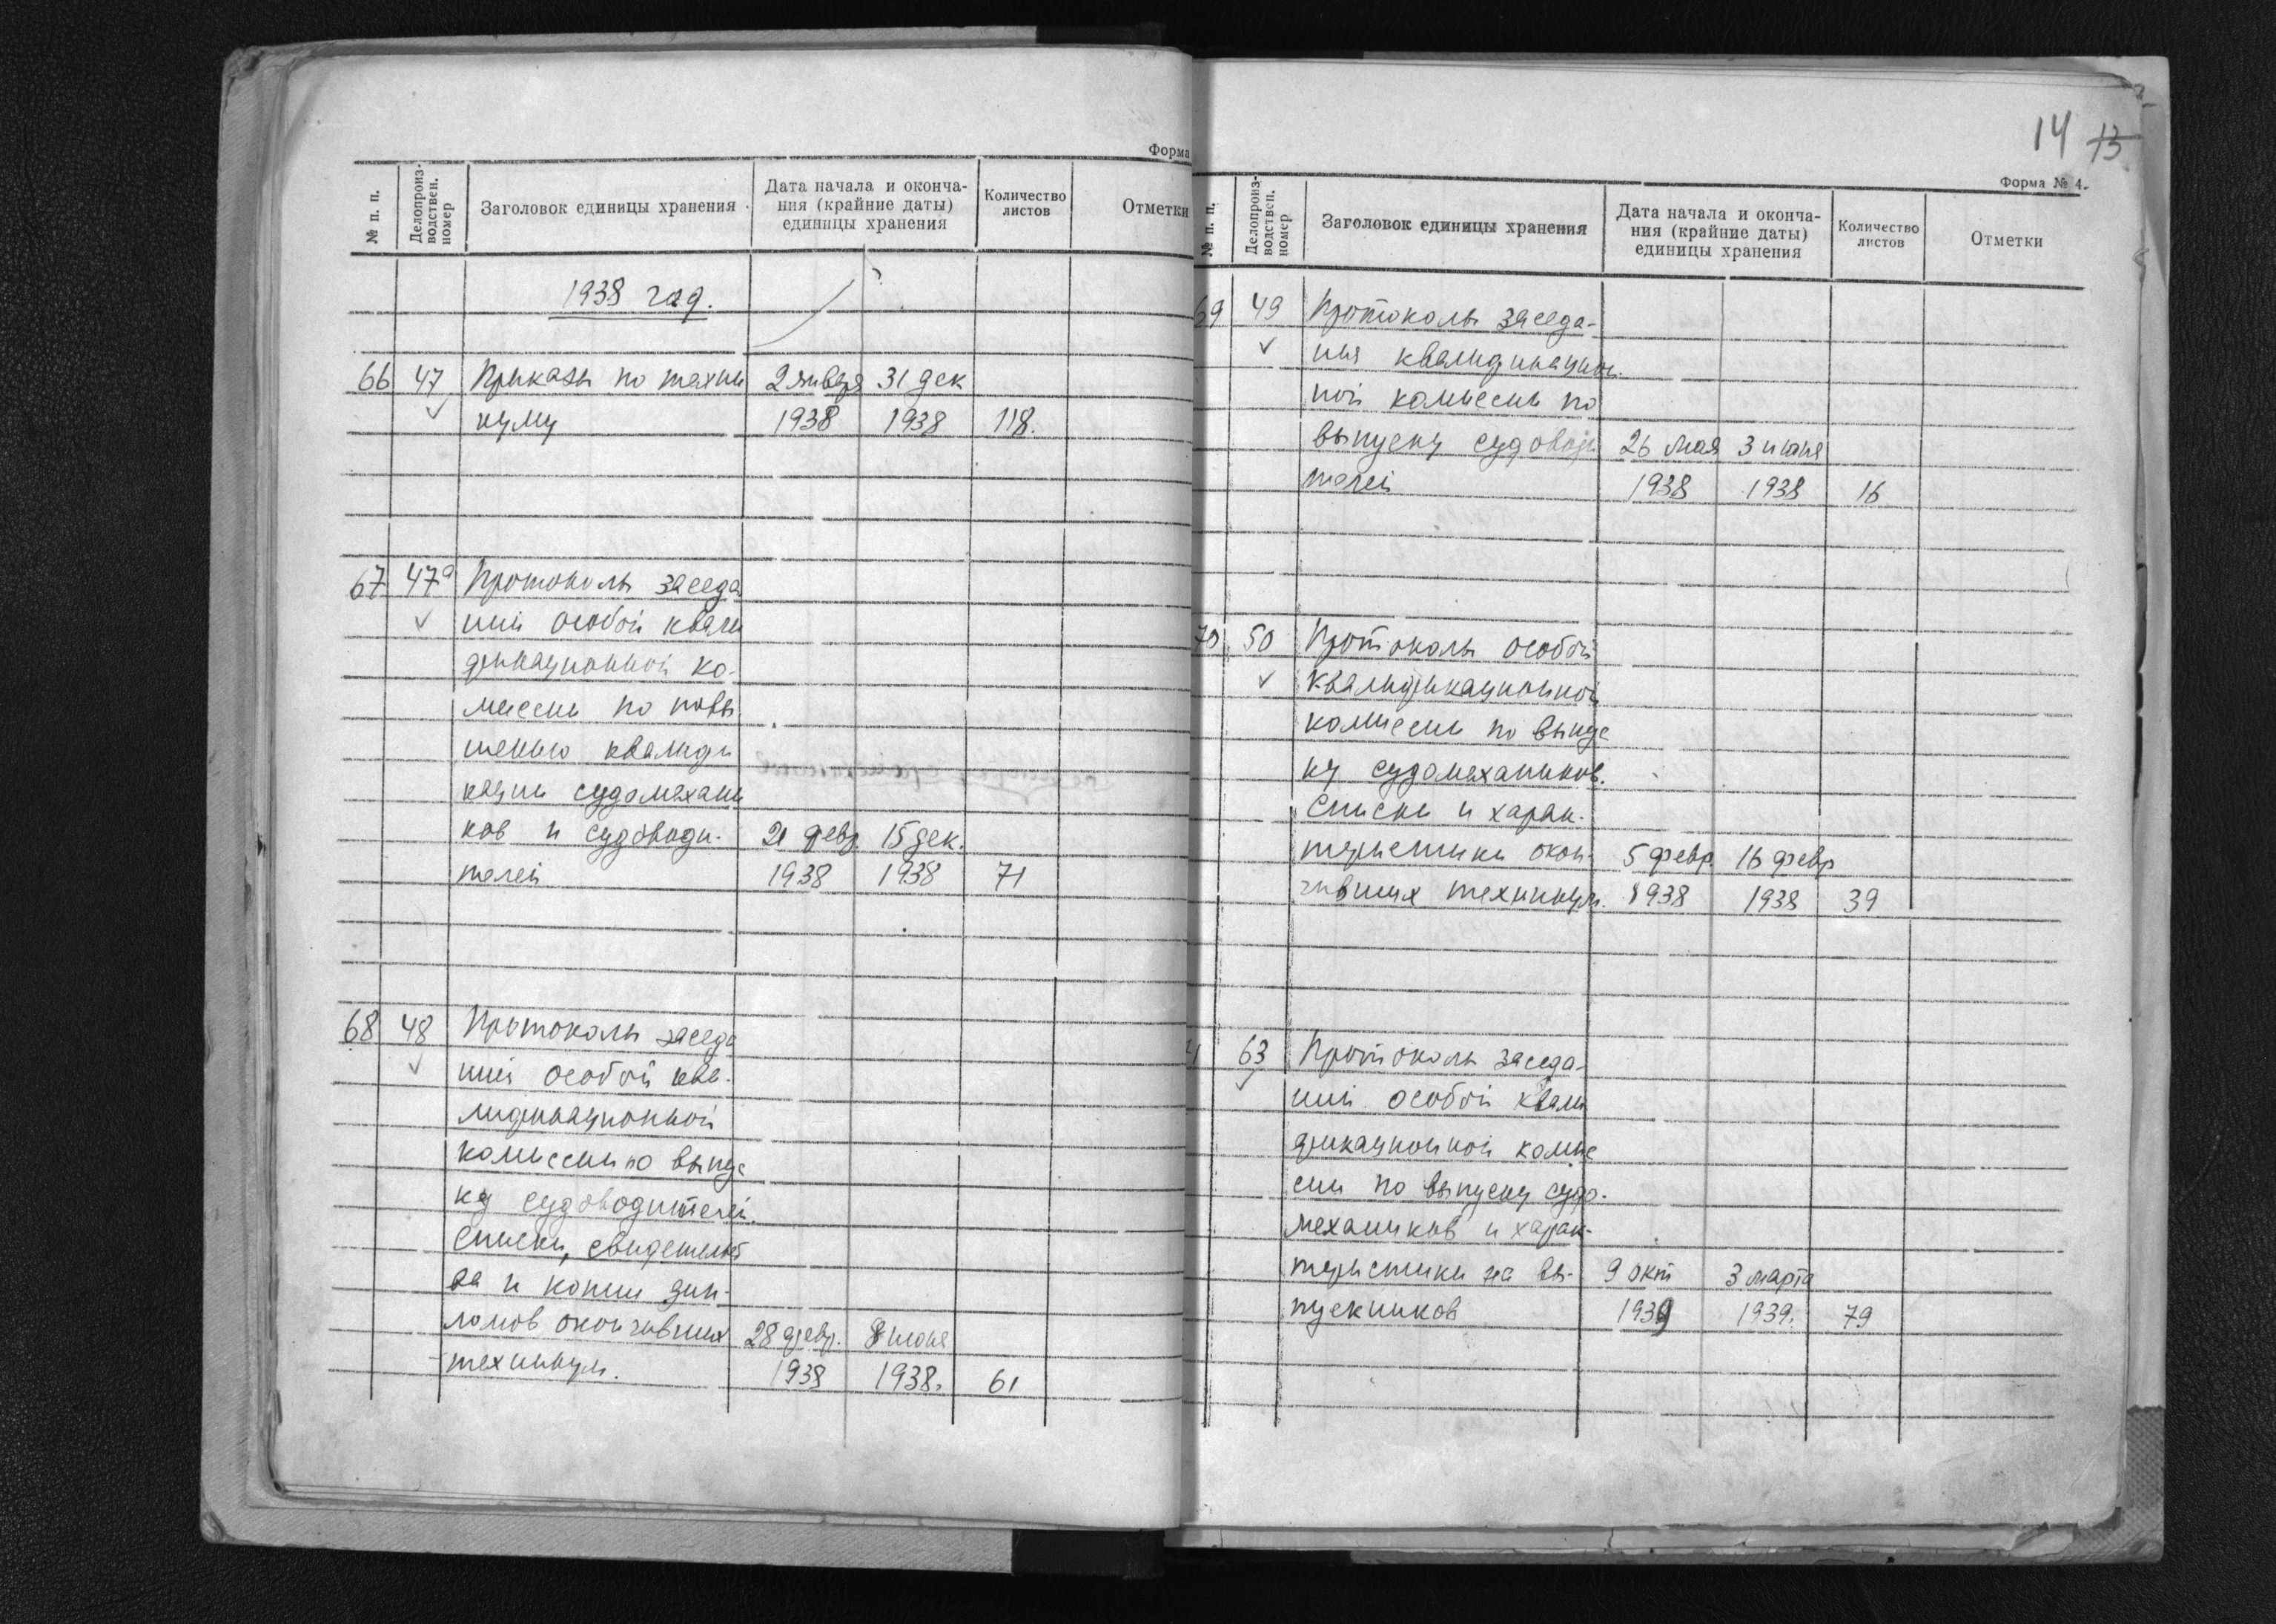 Форма
№ п. п.
Делопроиз-
водствен.
номер
Заголовок единицы хранения
Дата начала и оконча-
ния (крайние даты)
единицы хранения
Количество
листов
Отметки
1938 год.
66 47 Приказы по техни 2 января 31 дек
куму 1938 1938 118.
67 47а Протоколы заседа
ний особой квали
фикационной ко-
миссии по повы
шению квалифи
кации судомехани
ков и судоводи- 21 февр. 15 дек.
телей 1938 1938 71
68 48 Протоколы заседа
ний особой ква-
лификационной
комиссии по выпус
ку судоводителей.
Списки, свидетельст
ва и копии дип-
ломов окончивших 28 февр. 8 июня
техникум. 1938 1938. 61
14 13
Форма № 4.
№ п. п.
Делопроиз-
водствен.
номер
Заголовок единицы хранения
Дата начала и оконча-
ния (крайние даты)
единицы хранения
Количество
листов
Отметки
69 49 Протоколы заседа-
ния квалификацион.
ной комиссии по
выпуску судоводи 26 мая 3 июня
телей 1938 1938 16
70 50 Протоколы особой
квалификационной
комиссии по выпус
ку судомехаников.
Списки и харак-
теристики окон- 5 февр 16 февр
чивших техникум. 1938 1938 39
71 63 Протоколы заседа-
ний особой квали
фикационной комис
сии по выпуску судо-
механиков и харак-
теристики на вы- 9 окт 3 марта
пускников 1939 1939. 79